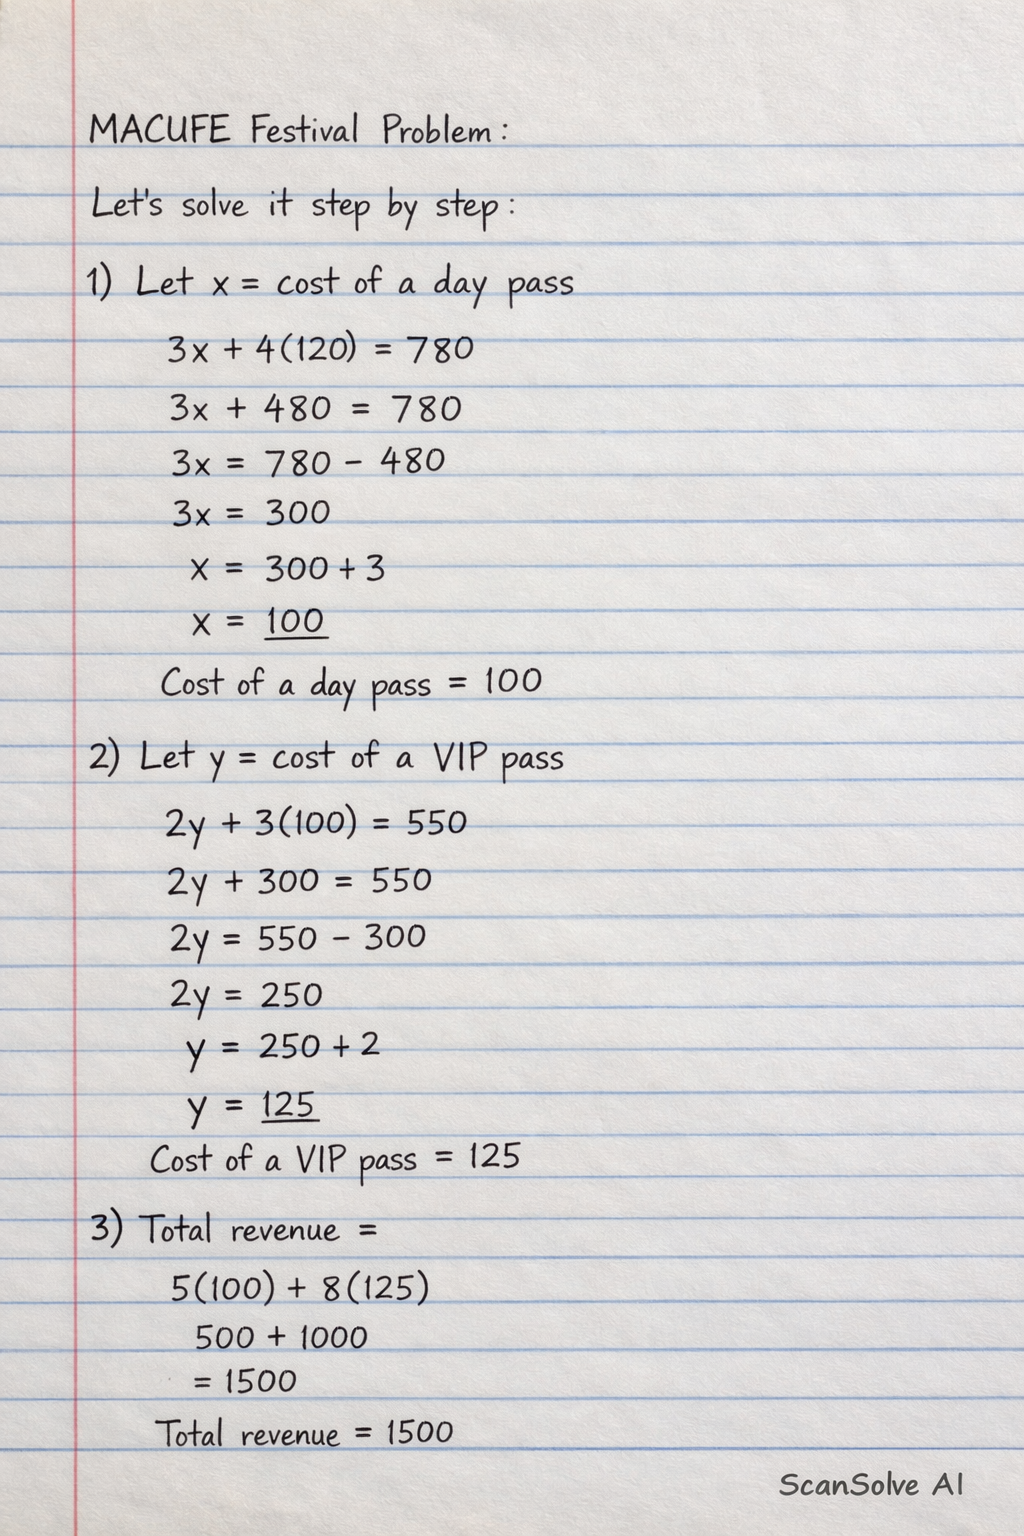 MACUFE Festival Problem:
Let's solve it step by step:
1) Let x = cost of a day pass
3x + 4(120) = 780
3x + 480 = 780
3x = 780 - 480
3x = 300
x = 300 + 3
x = 100
Cost of a day pass = 100
2) Let y = cost of a VIP pass
2y + 3(100) = 550
2y + 300 = 550
2y = 550 - 300
2y = 250
y = 250 + 2
y = 125
Cost of a VIP pass = 125
3) Total revenue =
5(100) + 8(125)
500 + 1000
= 1500
Total revenue = 1500
ScanSolve AI